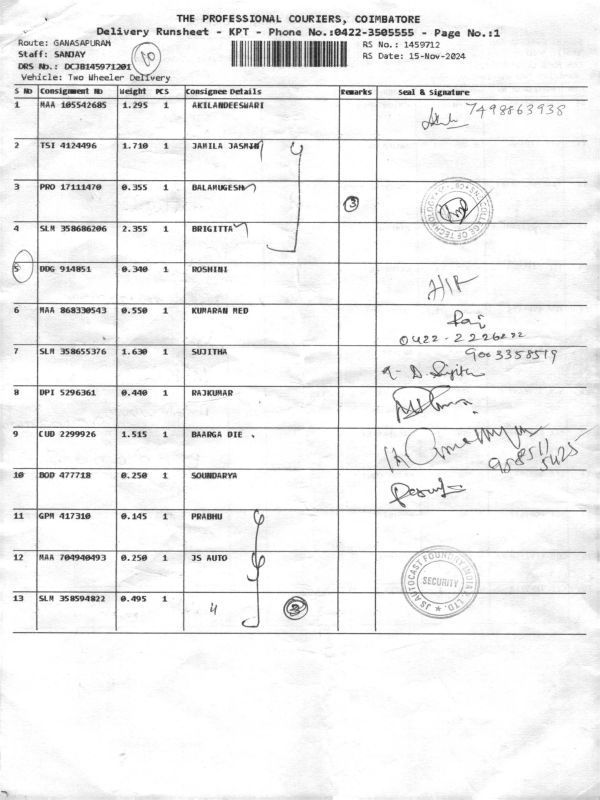 THE PROFESSIONAL COURIERS, COIMBATORE
Delivery Runsheet - KPT - Phone No.:0422-3505555 - Page No.:1
Route: GANASAPURAM
RS No.: 1459712
Staff: SANJAY
10
RS Date: 15-Nov-2024
DRS No.: DCJB145971201
Vehicle: Two Wheeler Delivery
S No Consignment No Weight PCS Consignee Details Remarks Seal & signature
1 MAA 105542685 1.295 1 AKILANDEESWARI 7498863938
2 TSI 4124496 1.710 1 JAMILA JASMIN
3 PRO 17111470 0.355 1 BALAMUGESH 3
4 SLM 358686206 2.355 1 BRIGITTA
5 DDG 914851 0.340 1 ROSHINI
6 MAA 868330543 0.550 1 KUMARAN MED
0422-2226222
7 SLM 358655376 1.630 1 SUJITHA 9003358519
8 DPI 5296361 0.440 1 RAJKUMAR
9 CUD 2299926 1.515 1 BAARGA DIE .
10 BOD 477718 0.250 1 SOUNDARYA
11 GPM 417310 0.145 1 PRABHU
12 MAA 704940493 0.250 1 JS AUTO
JS AUTOCAST FOUNDRY INDIA
SECURITY
13 SLM 358594822 0.495 1 4